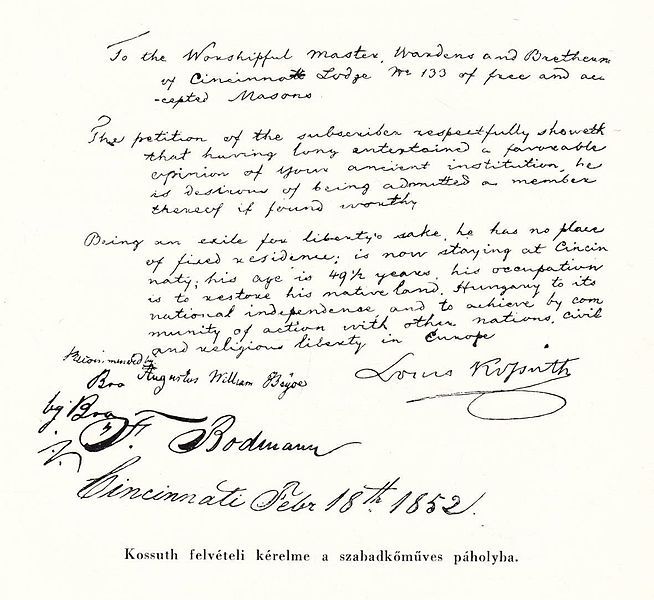 To the Worshipful Master, Wardens and Bretheren
of Cincinnati Lodge No 133 of free and ac
-cepted Masons.
The petition of the subscriber respectfully showeth
that having long entertained a favorable
opinion of your ancient institution, he
is desirous of being admitted a member
thereof if found worthy
Being an exile for liberty's sake, he has no place
of fixed residence; is now staying at Cincin
naty; his age is 49½ years, his occupation
is to restore his native land, Hungary to its
national independence, and to achieve by com
munity of action with other nations, civil
and religious liberty in Europe
Louis Kossuth
by
Bro Augustus William
by Bro
F. Bodmann
Cincinnati Febr 18th 1852.
Kossuth felvételi kérelme a szabadkőműves páholyba.